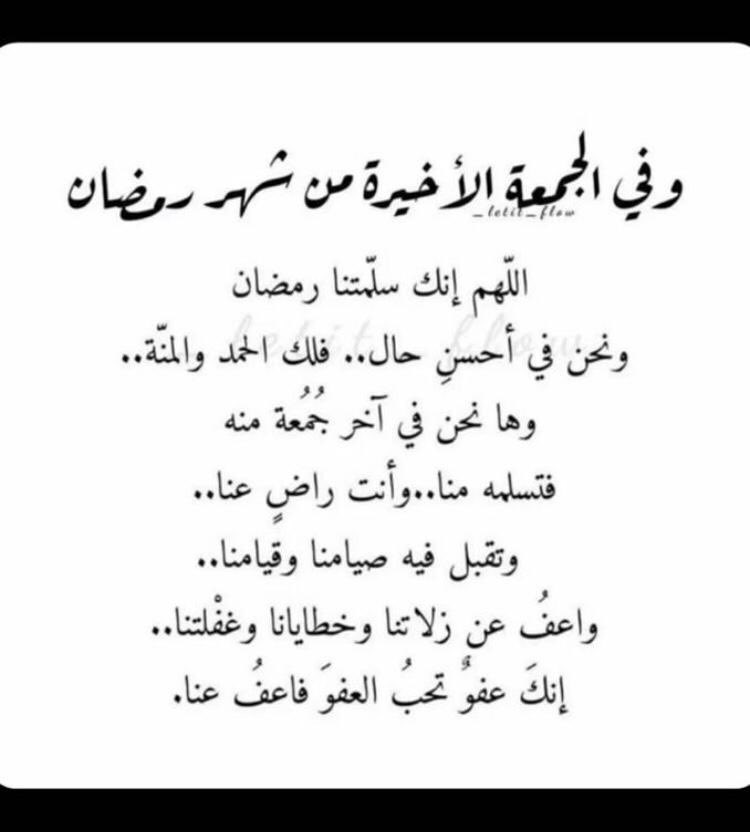 وفي الجمعة الأخيرة من شهر رمضان
_letit_flow
اللّهم إنك سلّمتنا رمضان
ونحن في أحسنِ حال.. فلك الحمد والمنّة..
وها نحن في آخر جُمُعة منه
فتسلمه منا..وأنت راضٍ عنا..
وتقبل فيه صيامنا وقيامنا..
واعفُ عن زلاتنا وخطايانا وغفْلتنا..
إنكَ عفوٌ تحبُ العفوَ فاعفُ عنا.